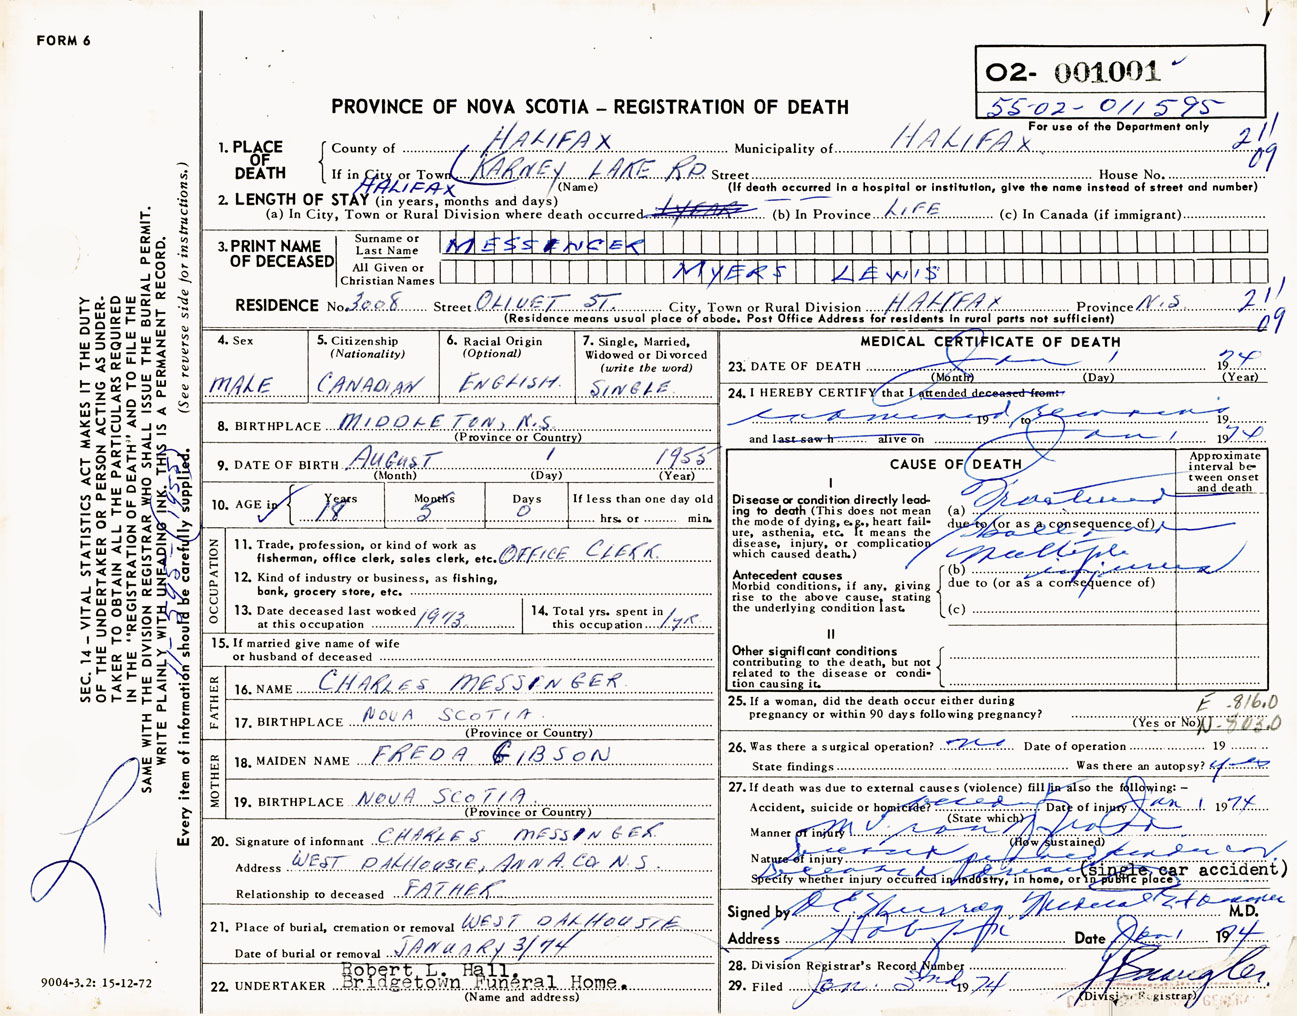 FORM 6
O2- 001001
55-02-011595
For use of the Department only
PROVINCE OF NOVA SCOTIA – REGISTRATION OF DEATH
1. PLACE OF DEATH
County of HALIFAX Municipality of HALIFAX
211
09
If in City or Town KARNEY LAKE RD Street House No.
HALIFAX (Name) (If death occurred in a hospital or institution, give the name instead of street and number)
2. LENGTH OF STAY (in years, months and days)
(a) In City, Town or Rural Division where death occurred 1 YEAR (b) In Province LIFE (c) In Canada (if immigrant)
3. PRINT NAME OF DECEASED
Surname or Last Name MESSENGER
All Given or Christian Names MYERS LEWIS
RESIDENCE No. 3008 Street OLIVET ST. City, Town or Rural Division HALIFAX Province N.S.
211
09
(Residence means usual place of abode. Post Office Address for residents in rural parts not sufficient)
4. Sex
MALE
5. Citizenship (Nationality)
CANADIAN
6. Racial Origin (Optional)
ENGLISH.
7. Single, Married, Widowed or Divorced (write the word)
SINGLE
8. BIRTHPLACE MIDDLETON, N.S.
(Province or Country)
9. DATE OF BIRTH AUGUST 1 1955
(Month) (Day) (Year)
10. AGE in Years 18 Months 5 Days 0 If less than one day old
hrs. or min.
OCCUPATION
11. Trade, profession, or kind of work as fisherman, office clerk, sales clerk, etc. OFFICE CLERK.
12. Kind of industry or business, as fishing, bank, grocery store, etc.
13. Date deceased last worked at this occupation 1973
14. Total yrs. spent in this occupation 1 yr.
15. If married give name of wife or husband of deceased
FATHER
16. NAME CHARLES MESSINGER.
17. BIRTHPLACE NOVA SCOTIA.
(Province or Country)
MOTHER
18. MAIDEN NAME FREDA GIBSON
19. BIRTHPLACE NOVA SCOTIA.
(Province or Country)
20. Signature of informant CHARLES MESSINGER.
Address WEST DALHOUSIE, ANNA. CO. N.S.
Relationship to deceased FATHER
21. Place of burial, cremation or removal WEST DALHOUSIE
Date of burial or removal JANUARY 3/74
22. UNDERTAKER Robert L. Hall.
Bridgetown Funeral Home.
(Name and address)
MEDICAL CERTIFICATE OF DEATH
23. DATE OF DEATH Jan 1 1974
(Month) (Day) (Year)
24. I HEREBY CERTIFY that I attended deceased from:
examined 19 to remains 19
and last saw h alive on Jan 1 1974
CAUSE OF DEATH
Approximate interval between onset and death
I
Disease or condition directly leading to death (This does not mean the mode of dying, e.g., heart failure, asthenia, etc. It means the disease, injury, or complication which caused death.)
(a) Fractured
due to (or as a consequence of)
Antecedent causes
Morbid conditions, if any, giving rise to the above cause, stating the underlying condition last.
(b) Multiple injuries
due to (or as a consequence of)
(c)
II
Other significant conditions
contributing to the death, but not related to the disease or condition causing it.
25. If a woman, did the death occur either during pregnancy or within 90 days following pregnancy?
(Yes or No)
E -816.0
N-803.0
26. Was there a surgical operation? no Date of operation 19
State findings Was there an autopsy? yes
27. If death was due to external causes (violence) fill in also the following: –
Accident, suicide or homicide? accident Date of injury Jan 1 1974
(State which)
Manner of injury M.V. ran
(How sustained)
Nature of injury
(single car accident)
Specify whether injury occurred in industry, in home, or in public place
Signed by Murray Medical Examiner M.D.
Address Halifax Date Jan 1 1974
28. Division Registrar's Record Number
29. Filed Jan. 2nd 1974
(Division Registrar)
SEC. 14 – VITAL STATISTICS ACT MAKES IT THE DUTY
OF THE UNDERTAKER OR PERSON ACTING AS UNDERTAKER TO OBTAIN ALL THE PARTICULARS REQUIRED
IN THE "REGISTRATION OF DEATH" AND TO FILE THE
SAME WITH THE DIVISION REGISTRAR WHO SHALL ISSUE THE BURIAL PERMIT.
WRITE PLAINLY WITH UNFADING INK. THIS IS A PERMANENT RECORD.
Every item of information should be carefully supplied. (See reverse side for instructions.)
9004-3.2: 15-12-72